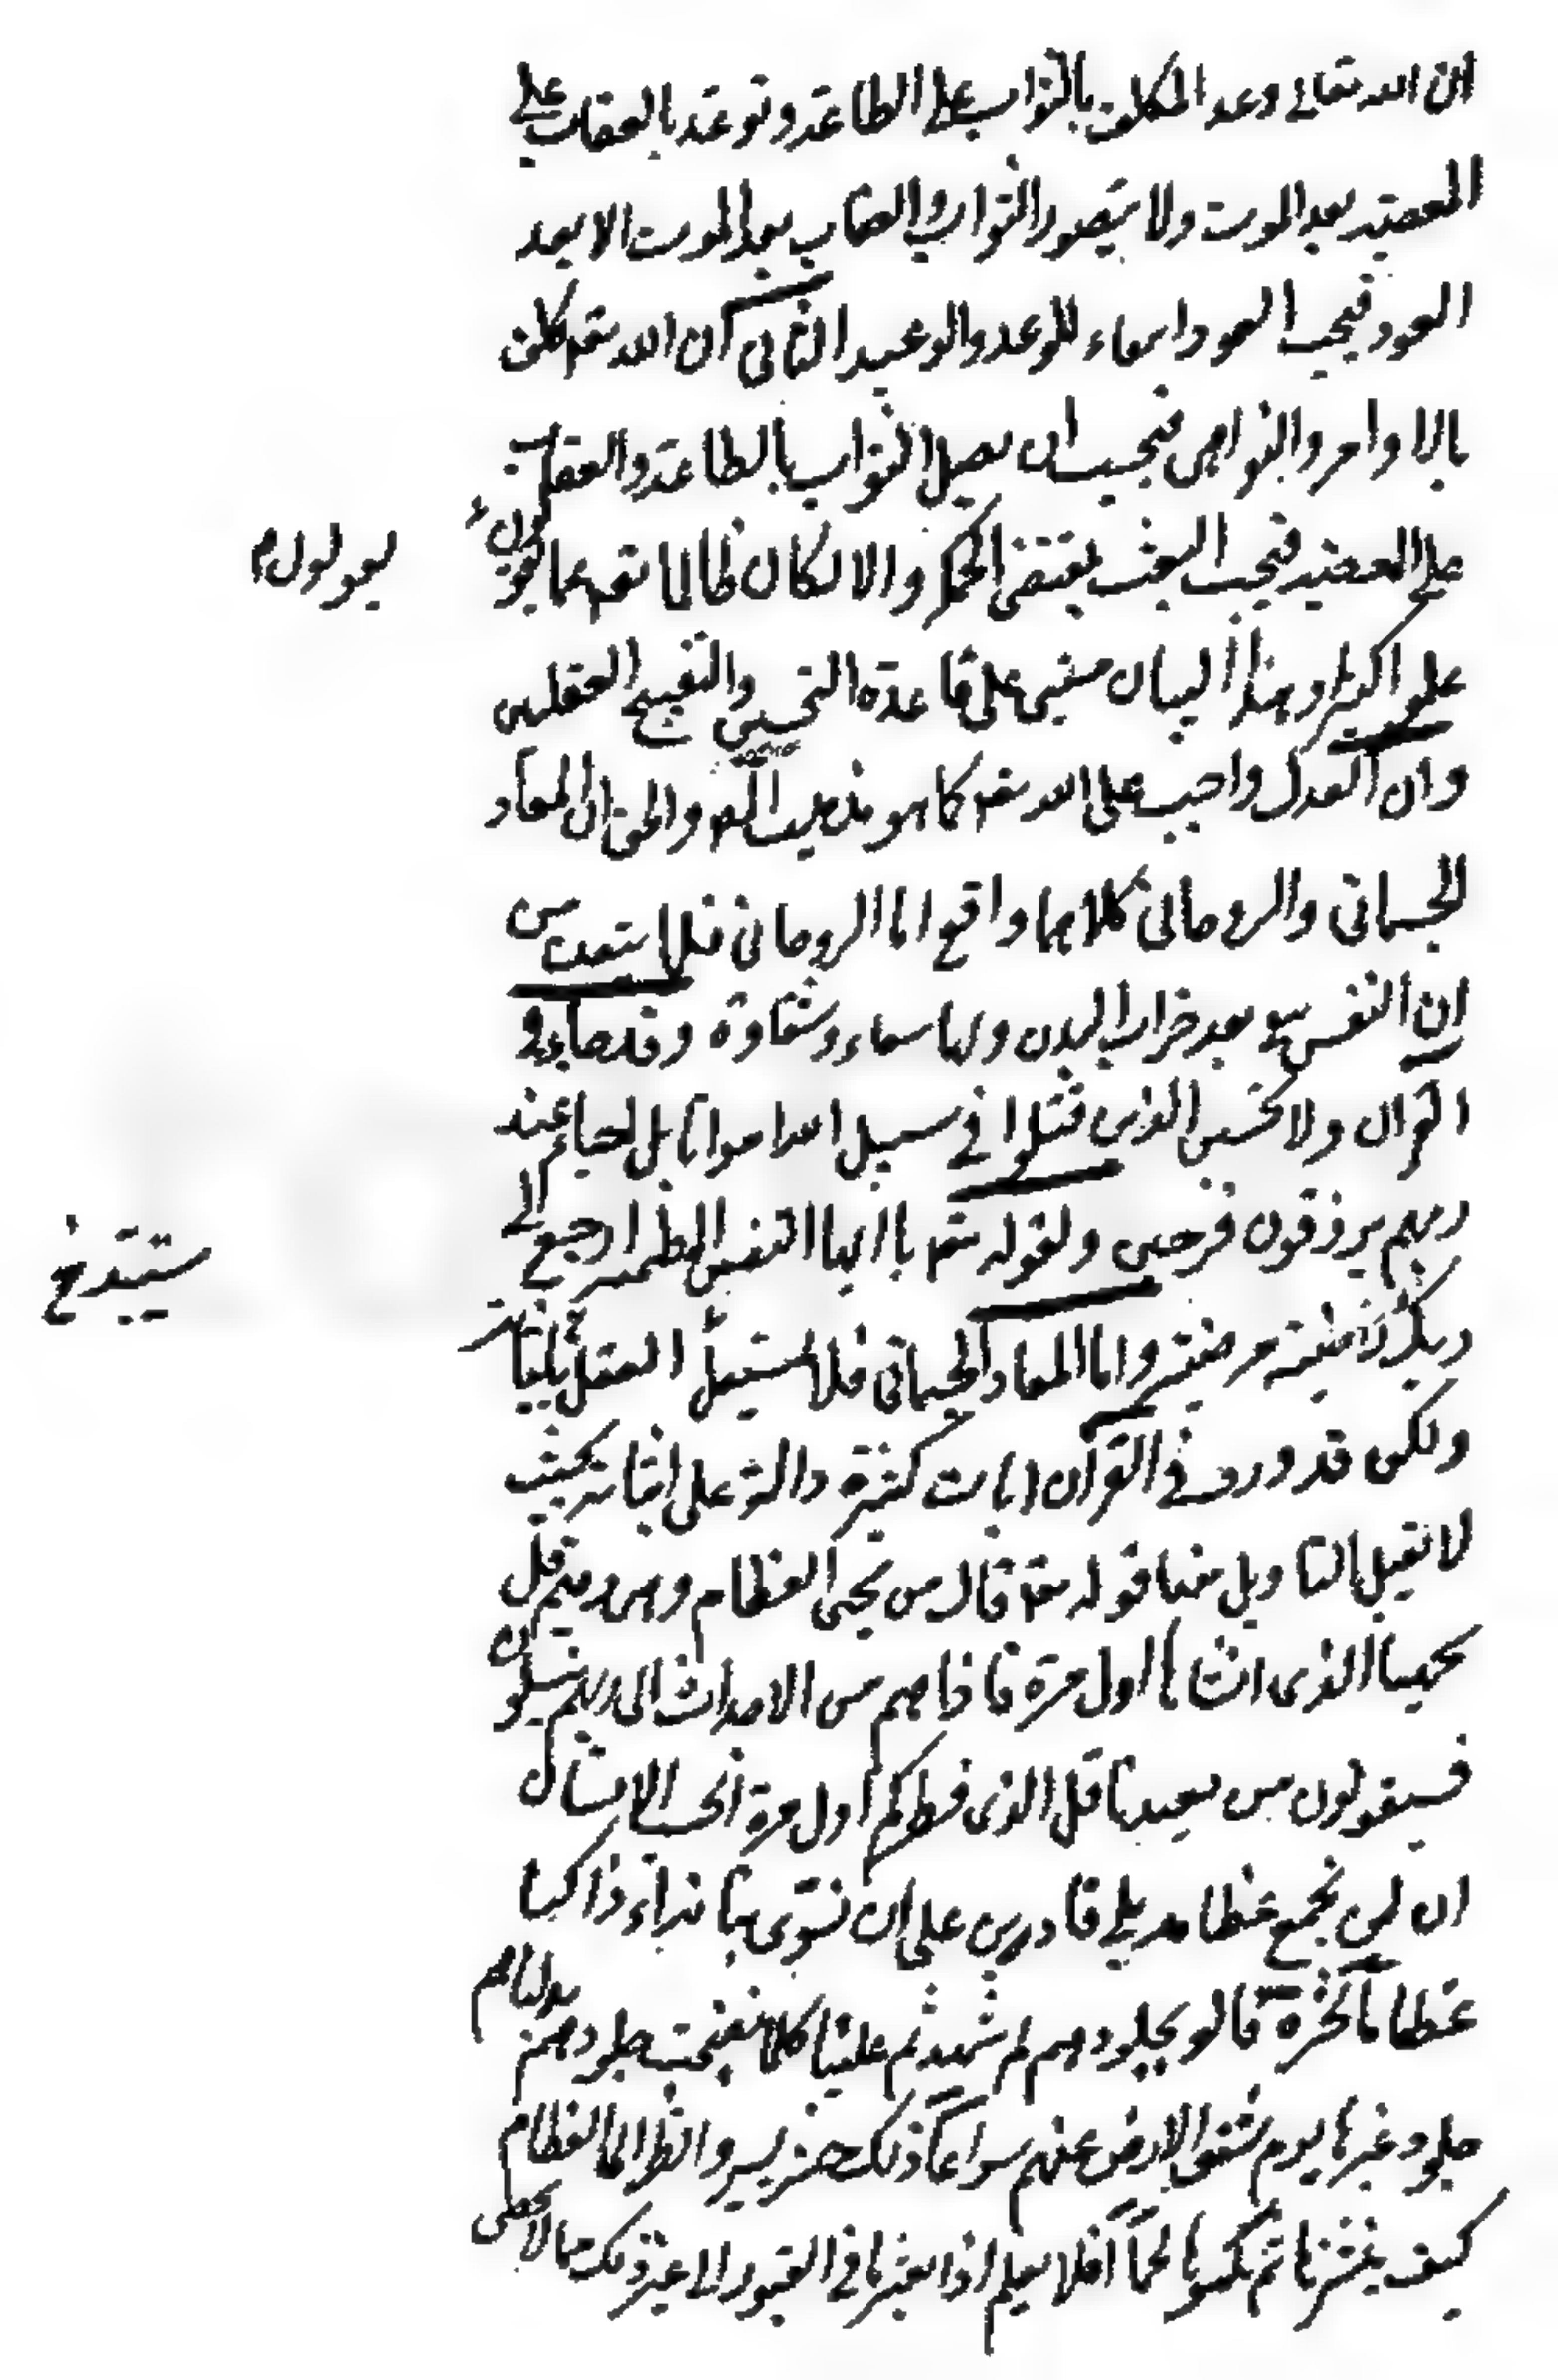 ان الله تعالى وعد المكلف بالثواب على الطاعة وتوعد بالعقاب على
المعصية بعد الموت ولا يتصور الثواب والعقاب بعد الموت الا بعد
العود فيجب العود ايفاء للوعد والوعيد الثاني ان الله تعه كلف
بالاوامر والنواهي فيجب ان يصل الثواب بالطاعة والعقاب
على المعصية فيجب البعث بمقتضى الحكمة والا لكان ظالما تعه عما يقولون
يقولون
علوا كبيرا وهذا البيان مبني على قاعدة التحسين والتقبيح العقليين
وان العدل واجب على الله تعه كما هو مذهب والحق ان المعاد
الجسماني والروحاني كلاهما واقع اما الروحاني فلما ستعرف من
ان النفس تبقى بعد خراب البدن ولها سعادة وشقاوة وقد جاء في
القرآن ولا تحسبن الذين قتلوا في سبيل الله امواتا بل احياء عند
ربهم يرزقون فرحين ولقوله تعه يا ايها النفس المطمئنة ارجعي الى
ربك راضية مرضية واما المعاد الجسماني فلا يستقل العقل باثباته
ستبتدخ
ولكن قد ورد في القرآن ايات كثيرة دالة على اثباته بحيث
لا تقبل التاويل منها قوله تعه قال من يحيى العظام وهي رميم قل
يحييها الذي انشاها اول مرة فاذا هم من الاجداث الى ربهم ينسلون
فسيقولون من يعيدنا قل الذي فطركم اول مرة ايحسب الانسان
ان لن نجمع عظامه بلى قادرين على ان نسوى بنانه ءاذا كنا
عظاما نخرة قالو لجلودهم لم شهدتم علينا كلما نضجت جلودهم بدلناهم
جلود غيرها يوم تشقق الارض عنهم سراعا ذلك حشر يسير وانظر الى العظام
كيف ننشزها ثم نكسوها لحما افلا يعلم اذا بعثر ما في القبور الى غير ذلك مما لا يحصى